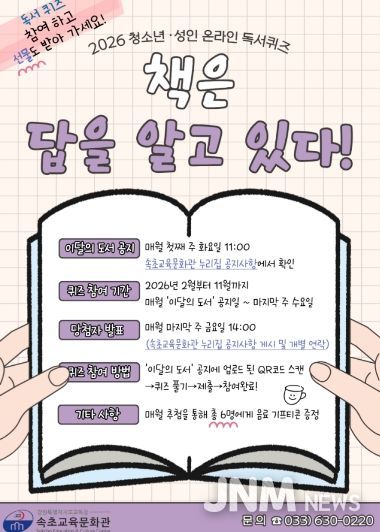 독서 퀴즈
참여 하고
선물도 받아 가세요!
2026 청소년·성인 온라인 독서퀴즈
책은
답을 알고 있다!
이달의 도서 공지 매월 첫째 주 화요일 11:00
속초교육문화관 누리집 공지사항에서 확인
퀴즈 참여 기간 2026년 2월부터 11월까지
매월 '이달의 도서' 공지일 ~ 마지막 주 수요일
당첨자 발표 매월 마지막 주 금요일 14:00
(속초교육문화관 누리집 공지사항 게시 및 개별 연락)
퀴즈 참여 방법 '이달의 도서' 공지에 업로드 된 QR코드 스캔
→퀴즈 풀기→제출→참여완료!
기타 사항 매월 추첨을 통해 총 6명에게 음료 기프티콘 증정
강원특별자치도교육청
속초교육문화관
Sokcho Education & Culture Center
문의 ☎ 033) 630-0220
JNM NEWS